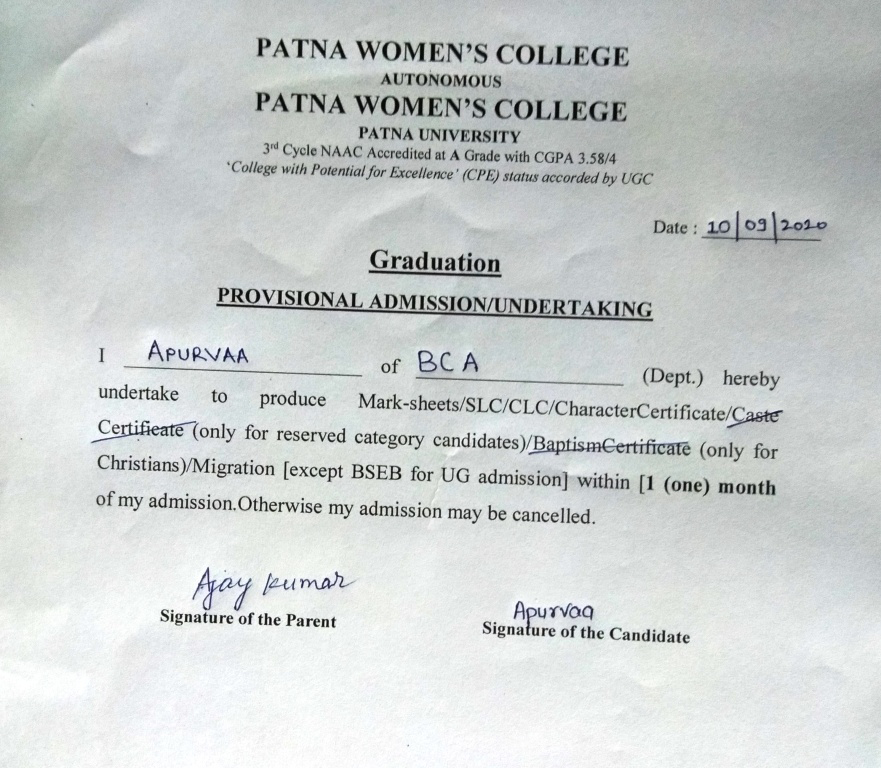 PATNA WOMEN'S COLLEGE
AUTONOMOUS
PATNA WOMEN'S COLLEGE
PATNA UNIVERSITY
3rd Cycle NAAC Accredited at A Grade with CGPA 3.58/4
'College with Potential for Excellence' (CPE) status accorded by UGC
Date : 10/09/2020
Graduation
PROVISIONAL ADMISSION/UNDERTAKING
I APURVAA of BCA (Dept.) hereby
undertake to produce Mark-sheets/SLC/CLC/CharacterCertificate/Caste
Certificate (only for reserved category candidates)/BaptismCertificate (only for
Christians)/Migration [except BSEB for UG admission] within [1 (one) month
of my admission.Otherwise my admission may be cancelled.
Ajay Kumar
Signature of the Parent
Apurvaa
Signature of the Candidate